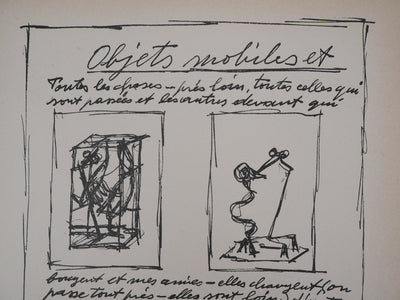 Objets mobiles et
Toutes les choses – près loin, toutes celles qui
sont passées et les autres devant qui
bougent et mes amies – elles changent (on
passe tout près – elles sont loin